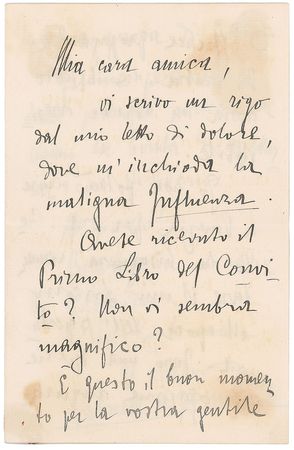 Mia cara amica,
vi scrivo un rigo
dal mio letto di dolore,
dove m'inchioda la
maligna Influenza.
Avete ricevuto il
Primo Libro del Convi-
to? Non vi sembra
magnifico?
È questo il buon momen
to per la vostra gentile